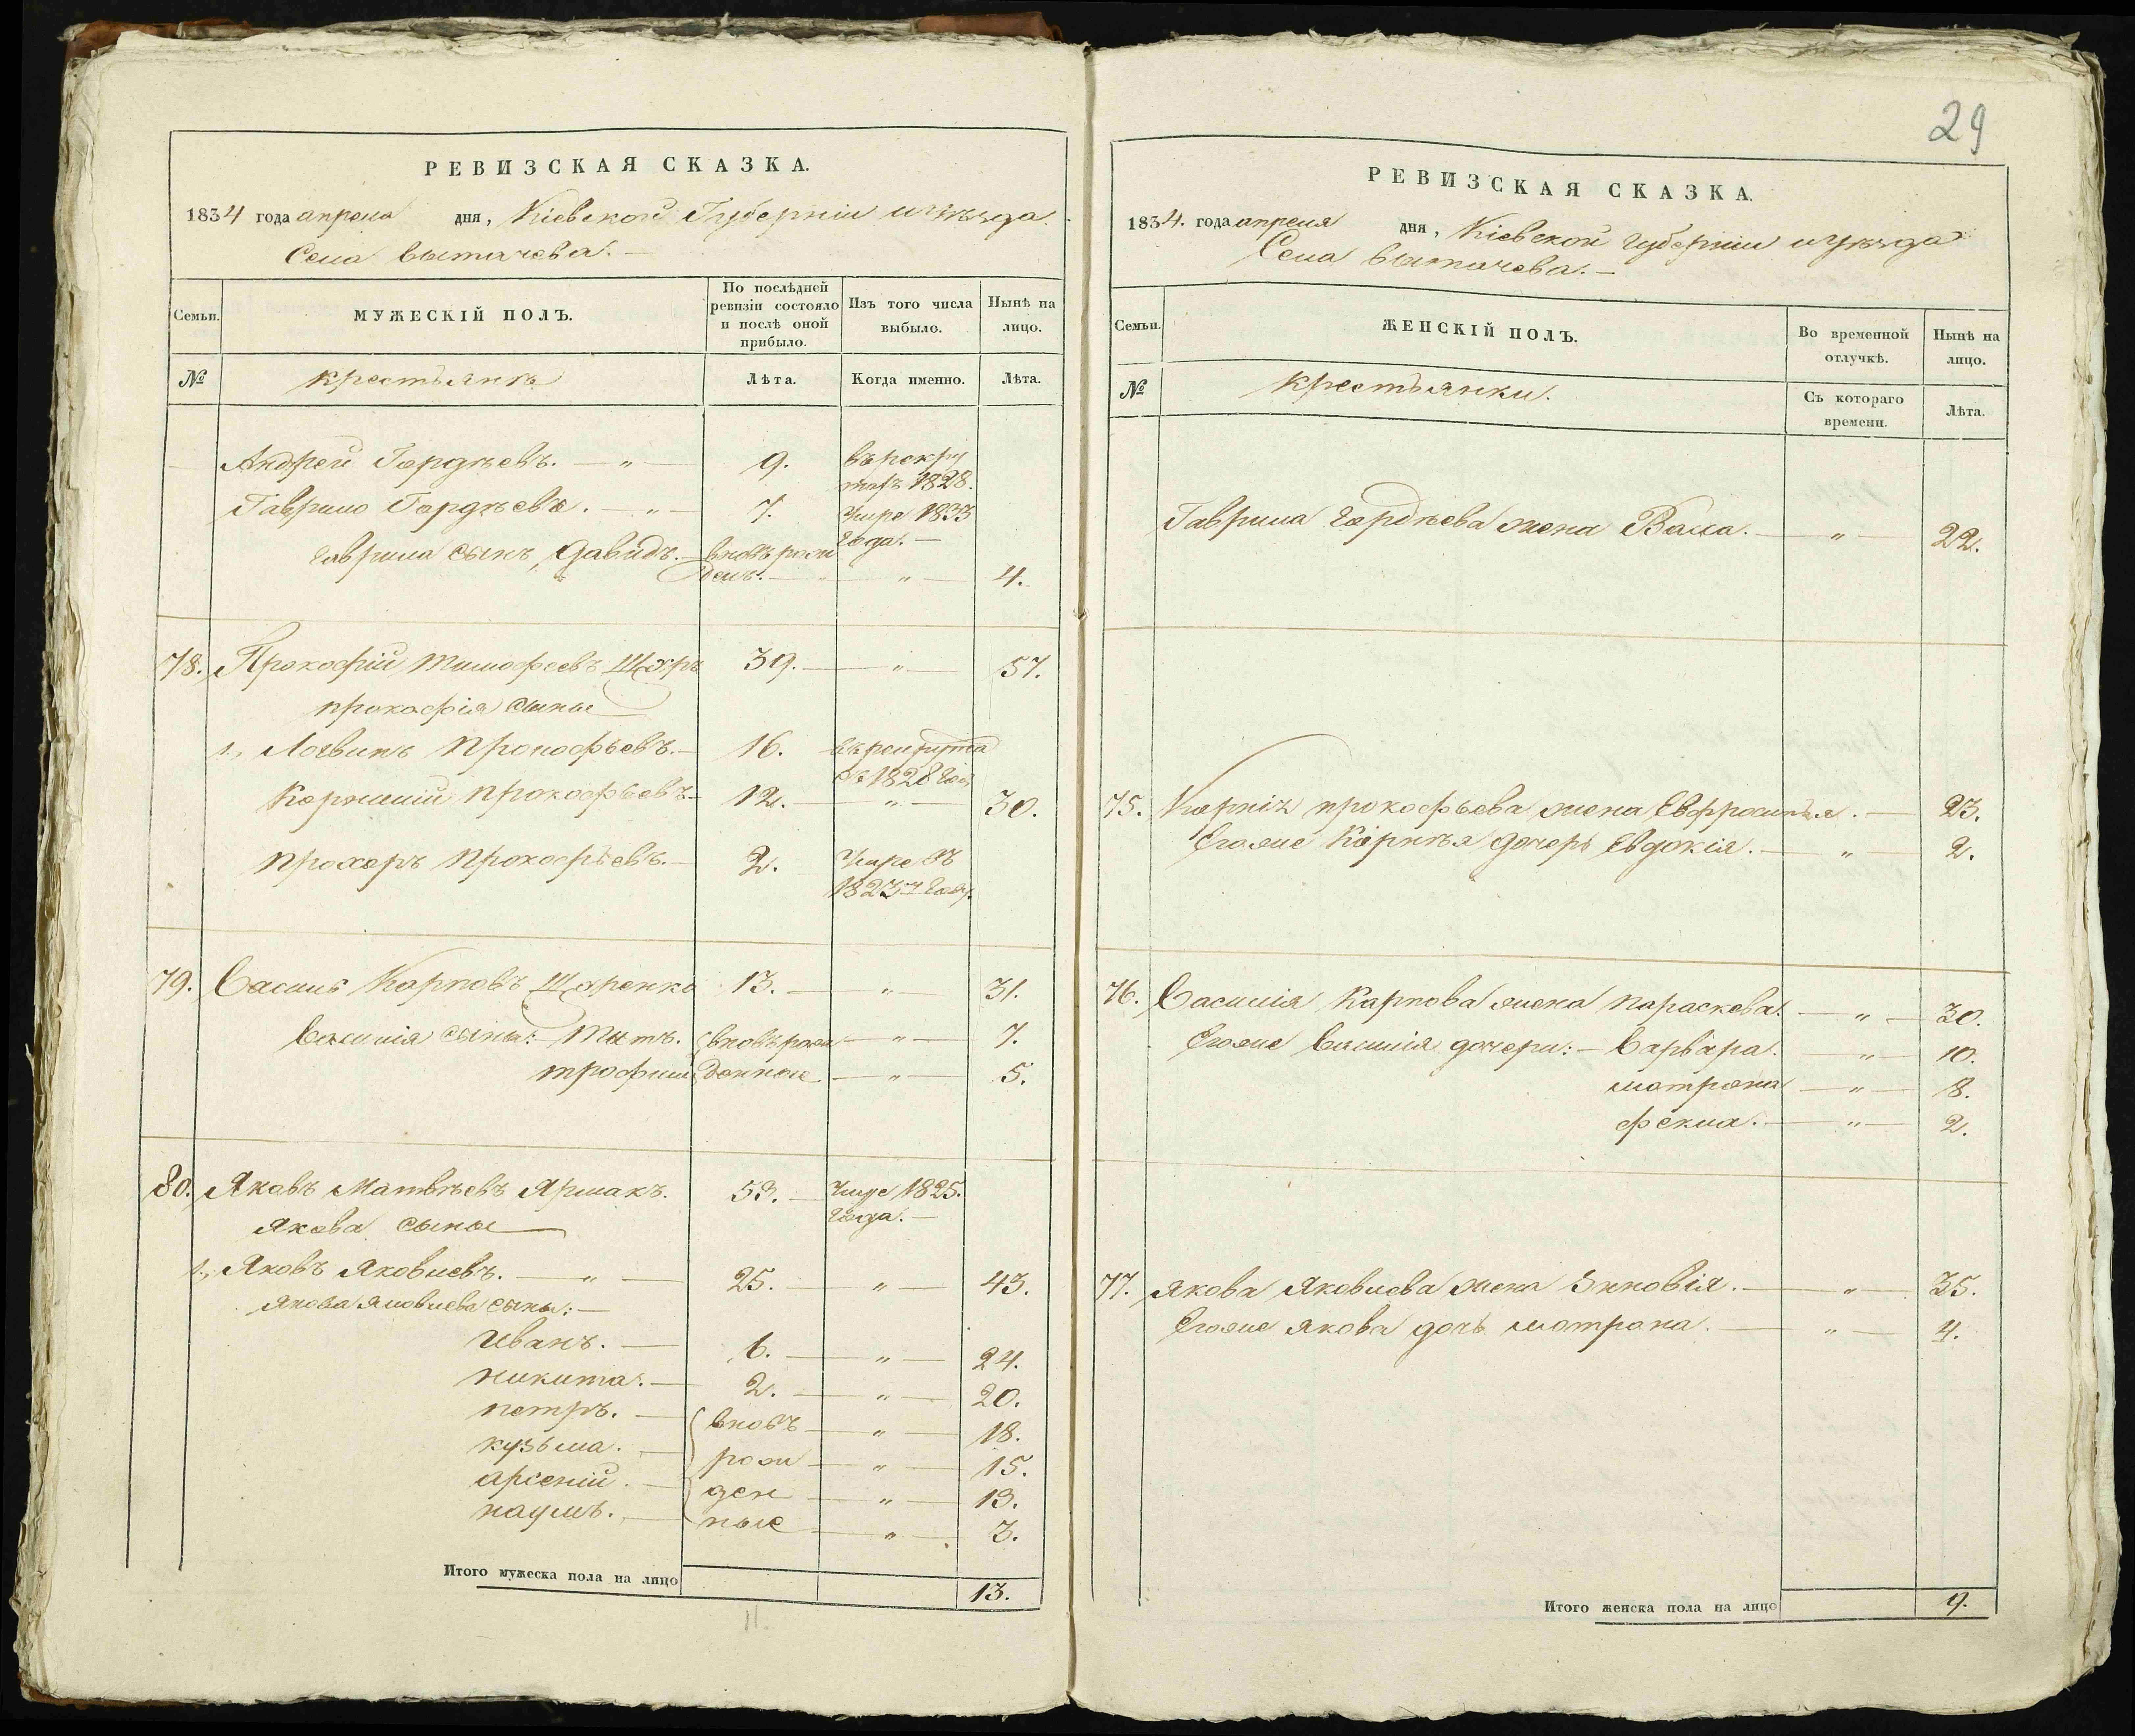 РЕВИЗСКАЯ СКАЗКА.
1834 года апреля дня, Кіевской Губерніи и уѣзда
Села Вытачева. —
Семьи. МУЖЕСКІЙ ПОЛЪ. По послѣдней ревизіи состояло и послѣ оной прибыло. Изъ того числа выбыло. Нынѣ на лицо.
№ крестьянъ Лѣта. Когда именно. Лѣта.
Андрей Гордѣевъ. — „ — 9. въ рекру
тахъ 1828.
Гаврило Гордѣевъ. — „ — 7. Умре 1833
года. —
Гаврила сынъ, Давидъ. — вновь рож
денъ. — „ — 4.
78. Прокофій Тимофеевъ 39. — „ — 57.
прокофія сыны
1., Логвинъ Прокофьевъ. — 16. въ рекрута
съ 1828 года
Корнилій прокофьевъ — 12. — „ — 30.
Прохоръ Прокофьевъ. — 2. Умре въ
1823 году.
79. Василь Карповъ 13. — „ — 31.
Василія сыны: Титъ. вновь рож — „ — 7.
трофимъ денные. — „ — 5.
80. Яковъ Матвѣевъ Ярмакъ. 53. — Умре 1825.
года. —
Якова сыны
1., Яковъ Яковлевъ. — „ — 25. — „ — 43.
Якова Яковлева сыны: —
Иванъ. — 6. — „ — 24.
Никита. — 2. — „ — 20.
петръ. — вновь — „ — 18.
кузьма. — рож — „ — 15.
арсеній. — ден — „ — 13.
наумъ. — ные — „ — 3.
Итого мужеска пола на лицо 13.
29
РЕВИЗСКАЯ СКАЗКА.
1834. года апреля дня, Кіевской губерніи и уѣзда
Села Вытачева. —
Семьи. ЖЕНСКІЙ ПОЛЪ. Во временной отлучкѣ. Нынѣ на лицо.
№ крестьянки. Съ котораго времени. Лѣта.
Гаврила Гордѣева жена Васса. — „ — 22.
75. Корнія прокофьева жена Евфросинья. — 23.
Егоже Корнѣя дочерь Евдокія. — „ — 2.
76. Василія Карпова жена параскева. — „ — 30.
Егоже Василія дочери: — Варвара. — „ — 10.
матрона — „ — 8.
фекла. — „ — 2.
77. Якова Яковлева жена Зиновія. — „ — 35.
Егоже Якова дочь матрона. — „ — 4.
Итого женска пола на лицо 9.